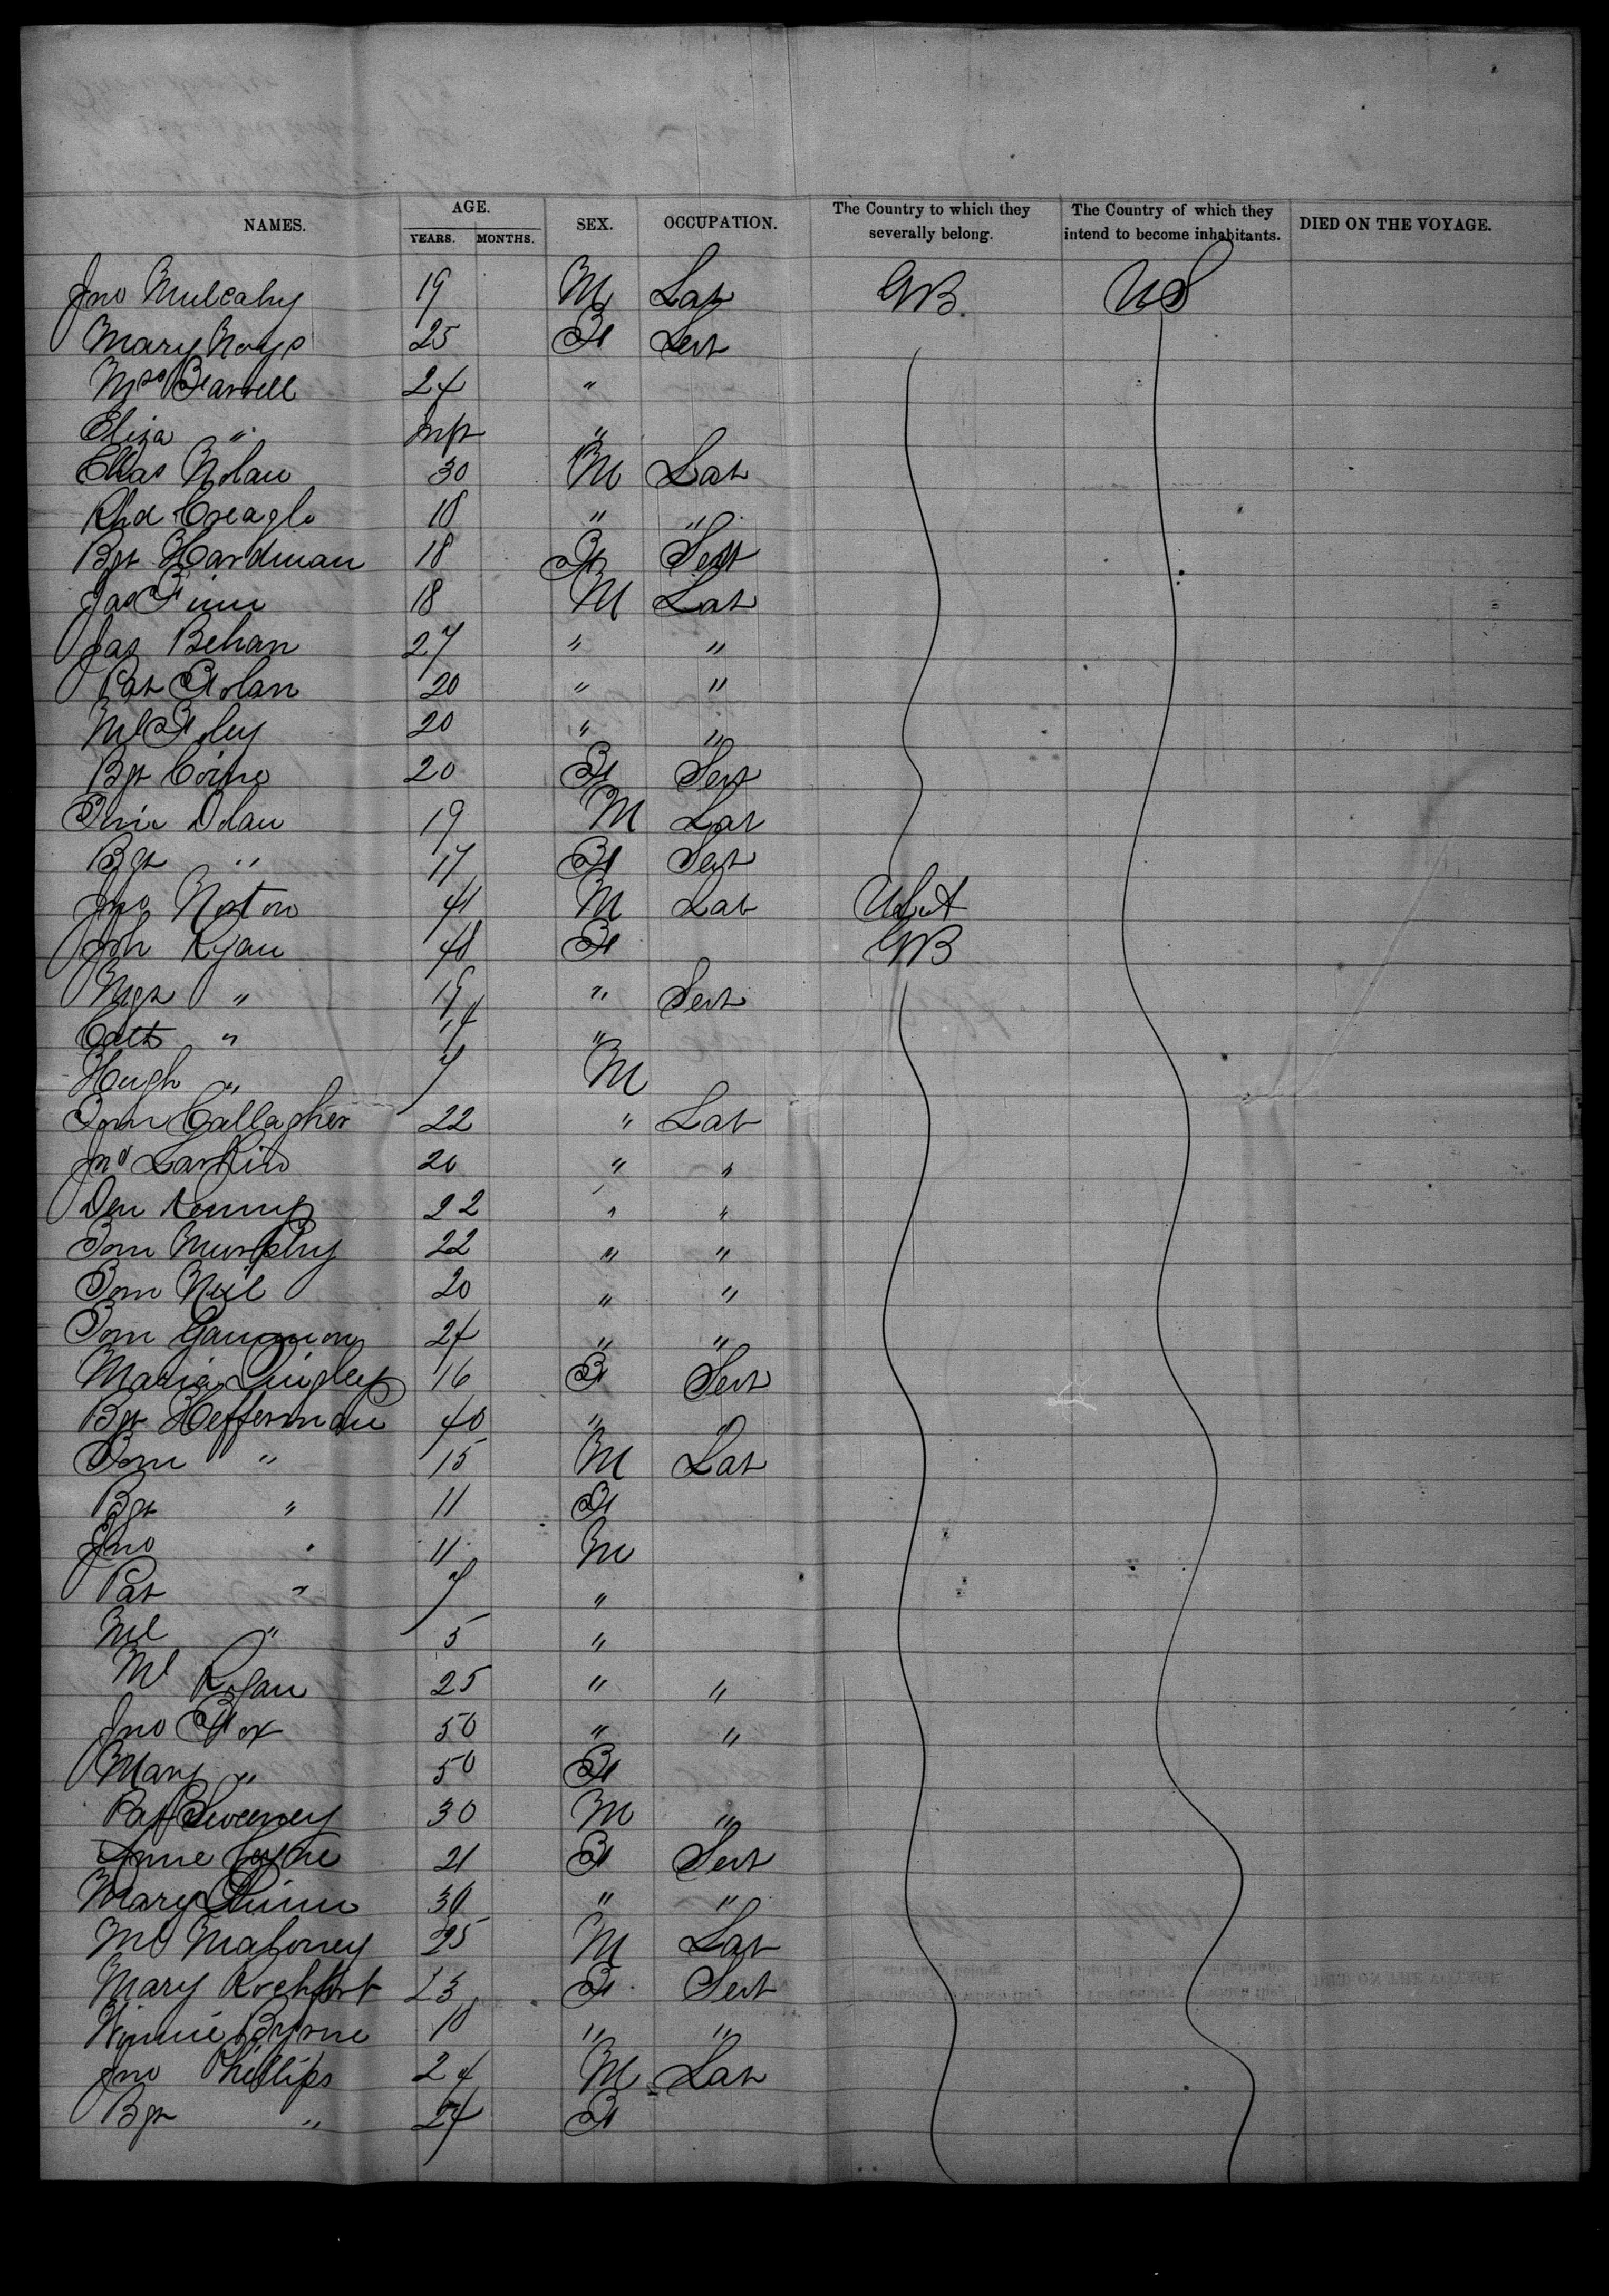 NAMES. AGE. SEX. OCCUPATION. The Country to which they severally belong. The Country of which they intend to become inhabitants. DIED ON THE VOYAGE.
YEARS. MONTHS.
Jno Mulcahy 19 M Lab GB. US
Mary 25 F Sert
Mrs Farrell 24 "
Eliza " Inft "
Chas Nolan 30 M Lab
Rhd Creagh 18 " "
Bgt Hardman 18 F Sert
Jas Finn 18 M Lab
Jas Behan 27 " "
Pat 20 " "
Ml Foley 20 " "
Bgt Coine 20 F Sert
Dolan 19 M Lab
Bgt " 17 F Sert
Jno Norton 41 M Lab USA
Joh Ryan 48 F GB
Mgt " 19 " Sert
Cath " 14 "
Hugh " 7 M
Tom Gallagher 22 " Lab
Jno Larkin 20 " "
Den 22 " "
Tom Murphy 22 " "
Tom Neil 20 " "
Tom 24 " "
Maria Quigley 16 F Sert
Bgt Heffernan 40 " "
Tom " 15 M Lab
Bgt " 11 F
Jno " 11 M
Pat " 7 "
Ml " 5 "
Ml Ryan 25 " "
Jno Fox 50 " "
Mary " 50 F
Pat Sweeney 30 M "
Anne 21 F Sert
Mary Quinn 30 " "
Ml Mahoney 25 M Lab
Mary Rochfort 23 F Sert
Winnie Byrne 18 " "
Jno Phillips 24 M Lab
Bgt " 24 F